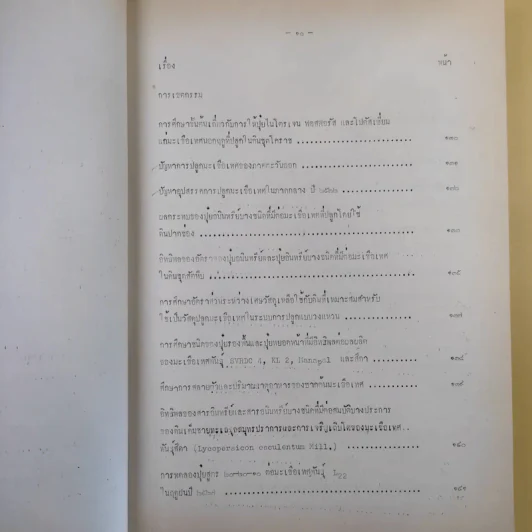 - ๒๐ -
เรื่อง หน้า
การเขตกรรม
การศึกษาขั้นต้นเกี่ยวกับการใส่ปุ๋ยไนโตรเจน ฟอสฟอรัส และโปตัสเซี่ยม
แก่มะเขือเทศนอกฤดูที่ปลูกในดินชุดโคราช
ปัญหาการปลูกมะเขือเทศของภาคตะวันออก
ปัญหาอุปสรรคการปลูกมะเขือเทศในภาคกลาง ปี ๒๕๒๖
ผลกระทบของปุ๋ยอนินทรีย์บางชนิดที่มีต่อมะเขือเทศที่ปลูกโดยใช้
ดินปากช่อง
อิทธิพลของอัตราของปุ๋ยอนินทรีย์และปุ๋ยอินทรีย์บางชนิดที่มีต่อมะเขือเทศ
ในดินชุดสัตหีบ
การศึกษาอัตราส่วนระหว่างเศษวัสดุเหลือใช้กับดินที่เหมาะสมสำหรับ
ใช้เป็นวัสดุปลูกมะเขือเทศในระบบการปลูกแบบวงแหวน
การศึกษาชนิดของปุ๋ยรองก้นและปุ๋ยหยอดหน้าที่มีอิทธิพลต่อผลผลิต
ของมะเขือเทศพันธุ์ SVRDC 4, EL 2, Nanogol และสีดา
ศึกษาการสลายตัวและปริมาณธาตุอาหารของซากต้นมะเขือเทศ
อิทธิพลของสารอินทรีย์และสารอนินทรีย์บางชนิดที่มีต่อสมบัติบางประการ
ของดินเค็มชายทะเลจังหวัดสมุทรปราการและการเจริญเติบโตของมะเขือเทศ..
พันธุ์สีดา (Lycopersicon esculentum Mill.) ๑๔๐
การทดลองปุ๋ยสูตร ๒๐-๒๐-๑๐ ต่อมะเขือเทศพันธุ์ L22
ในฤดูฝนปี ๒๕๒๗ ๑๔๑